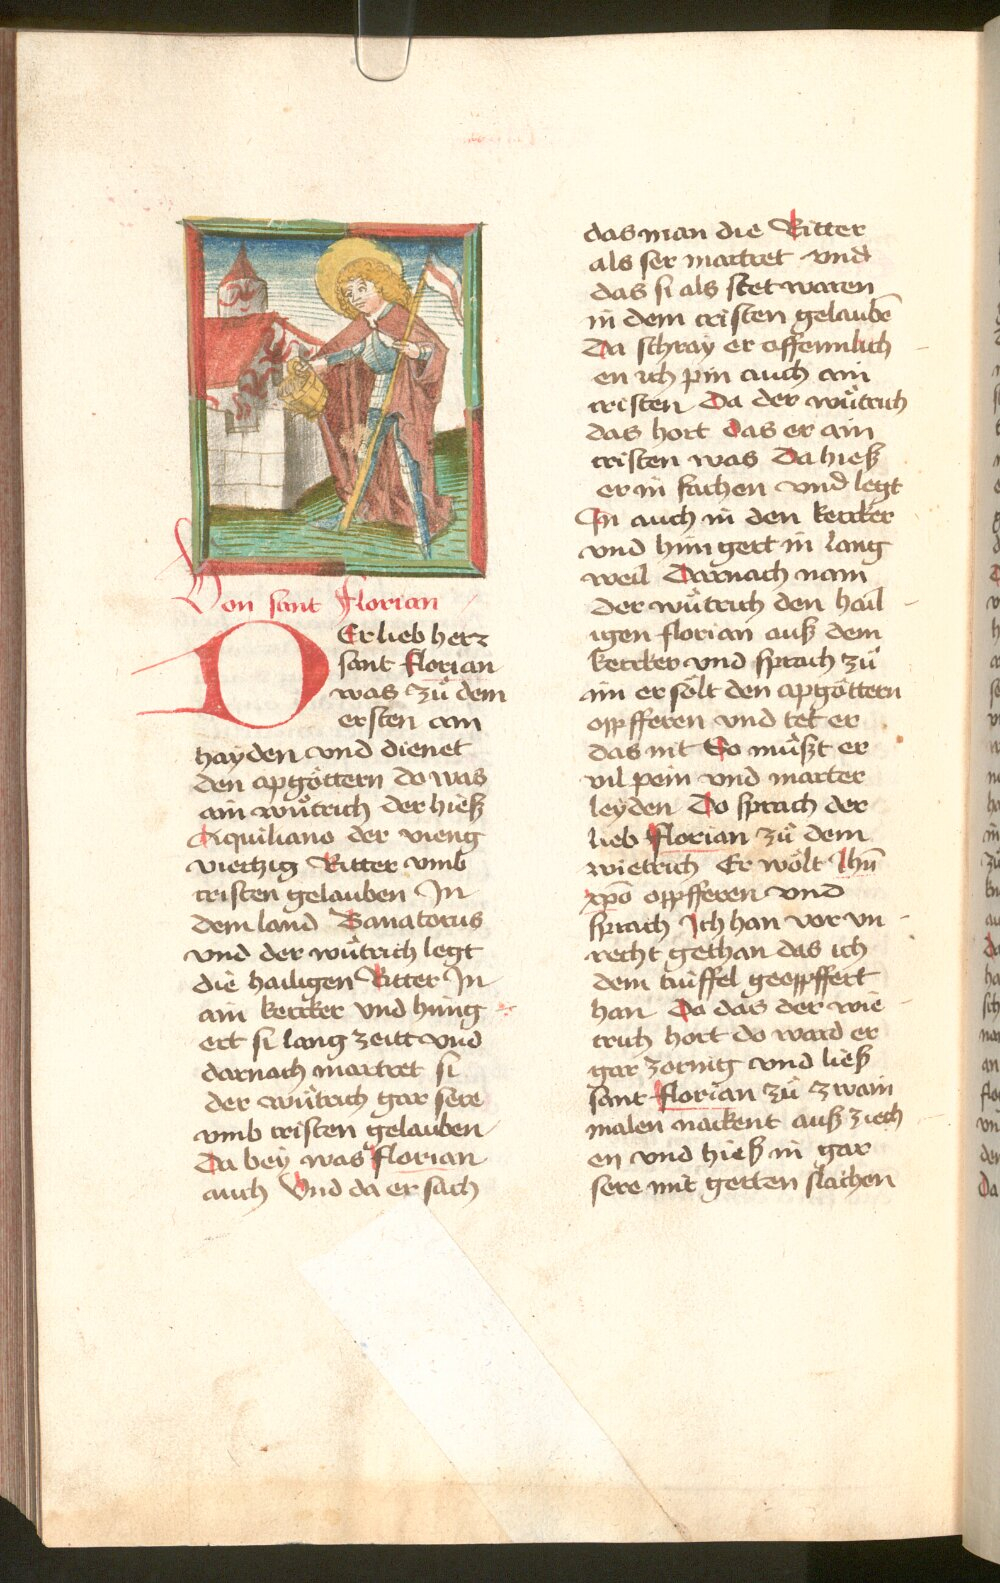 Von sant Florian
DEr lieb herr
sant florian
was zů dem
ersten ain
hayden vnd dienet
den apgöttern do was
ain wůtrich der hieß
Aiquiliano der vieng
viertzig Ritter vmb
cristen gelauben In
dem land Banatorus
vnd der wůtrich legt
die hailigen Ritter In
ain kercker vnd hung
ert si lang zeitt vnd
darnach martret si
der wůtrich gar sere
vmb cristen gelauben
Da bey was florian
auch Vnd da er sach
das man die Ritter
als ser martret vnd
das si als stet waren
in dem cristen gelaubē
Da schray er offennlich
en ich pin auch ain
cristen Da der wůtrich
das hort das er ain
cristen was Da hieß
er in fachen vnd legt
In auch in den kercker
vnd hungert in lang
weil Darnach nam
der wůtrich den hail
igen florian auß dem
kercker vnd sprach zů
im er sölt den apgöttern
oppfferen vnd tet er
das nit So můßt er
vil pein vnd marter
leyden Do sprach der
lieb florian zů dem
wietrich Er wölt Ihū
xpō oppfferen vnd
sprach Ich han vor vn
recht gethan das ich
dem tuiffel geopffert
han Da das der wie
trich hort do ward er
gar zornig vnd ließ
sant florian zů zwain
malen nackent auß ziech
en vnd hieß in gar
sere mit gerten slachen